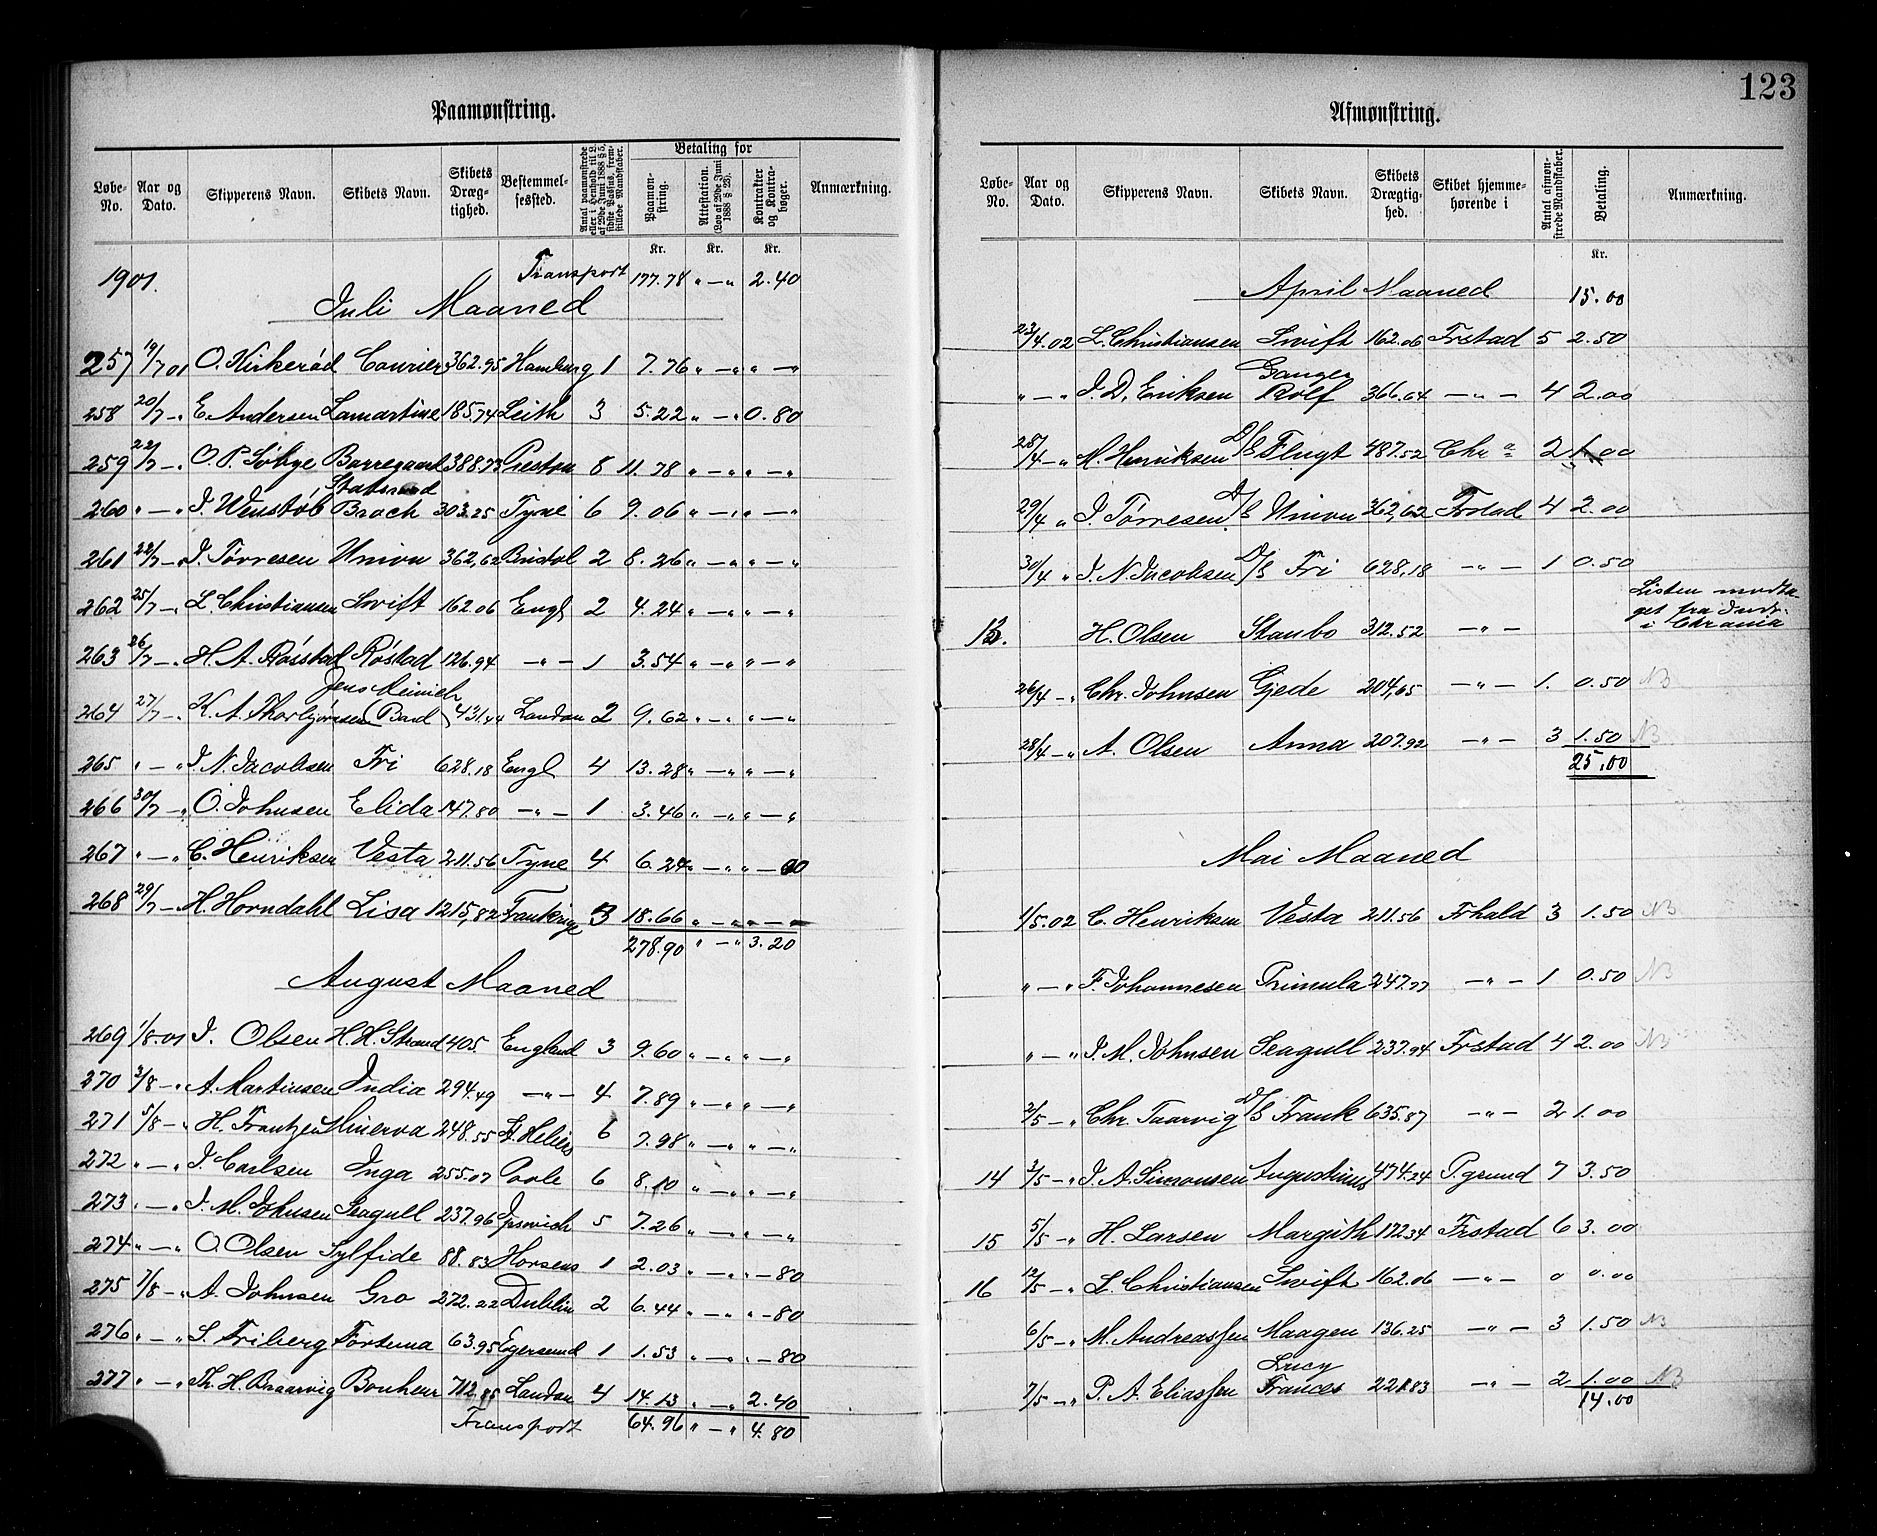 123
Paamønstring.
Løbe-No. Aar og Dato. Skipperens Navn. Skibets Navn. Skibets Dræg-tighed. Bestemmel-sessted. Antal paamønstrede eller i Henhold til L. af 29de Juni 1888 § 5, sidste Passus, frem-stillede Mandskaber. Betaling for Paamøn-string. Attestation. (Lov af 29de Juni 1888 § 23). Kontrakter og Kontra-bøger. Anmærkning.
Kr. Kr. Kr.
1901. Transport 177.78 " — " 2.40
Juli Maaned
257 19/7 01 O. Kirkerød Courier 362.95 Hamburg 1 7.76 " — " " — "
258 20/7 — " E. Andersen Lamartine 185.74 Leith 3 5.22 " — " 0.80
259 22/7 — " O. P. Søbye Borregaard 388.73 Preston 8 11.78 " — " " — "
260 " — " J. Wenstøb Statsraad Broch 303.25 Tyne 6 9.06 " — " " — "
261 22/7 — " J. Tørresen Union 362,62 Bristol 2 8.26 " — " " — "
262 25/7 — " L. Christiansen Swift 162.06 Engl 2 4.24 " — " " — "
263 26/7 — " H. A. Røsstad Røstad 126.94 — " — 1 3.54 " — " " — "
264 27/7 — " K. A. Thorbjørnsen Jens Meinich (Bard) 431.44 London 2 9.62 " — " " — "
265 " — " J. N. Jacobsen Fri 628.18 Engl 4 13.28 " — " " — "
266 30/7 — " O. Johnsen Elida 147.80 — " — 1 3.46 " — " " — "
267 " — " C. Henriksen Vesta 211.56 Tyne 4 6.24 " — " " —
268 29/7 — " H. Horndahl Lisa 1215,82 Frankrige 3 18.66 " — " " —
278.90 " — " 3.20
August Maaned
269 1/8.01 J. Olsen H. H. Strand 405. England 3 9.60 " — " " — "
270 3/8 — " A. Martinsen India 294.49 — " — 4 7.89 " — " " — "
271 5/8 — " H. Frantzen Minerva 248.55 St Heliers 6 7.98 " — " " — "
272 " — " J. Carlsen Inga 255.07 Poole 6 8.10 " — " " — "
273 " — " J. M. Johnsen Seagull 237.96 Ipswich 5 7.26 " — " " — "
274 " — " O. Olsen Sylfide 88.83 Horsens 1 2.03 " — " " — 80
275 7/8 — " A. Johnsen Gro 272.22 Dublin 2 6.44 " — " " — 80
276 " — " S. Friberg Fortuna 63.95 Egersund 1 1.53 " — " " — 80
277 " — " Th. H. Braarvig Bonheur 712.85 London 4 14.13 " — " 2.40
Transport 64.96 " — " 4.80
Afmønstring.
Løbe-No. Aar og Dato. Skipperens Navn. Skibets Navn. Skibets Drægtig-hed. Skibet hjemme-hørende i Antal afmøn-strede Mandskaber. Betaling. Anmærkning.
Kr.
April Maaned 15.00
23/4.02 L. Christiansen Swift 162.06 Frstad 5 2.50
" — " J. D. Eriksen Ganger Rolf 366.64 — " — 4 2.00
28/4 — " M. Henriksen D/S Flugt 487.52 Chr a 2 1.00
29/4 " J. Tørresen D/S Union 362,62 Frstad 4 2.00
30/4 " J. N. Jacobsen D/S Fri 628,18 — " — 1 0.50
13. H. Olsen Stanbo 312.52 — " — Listen modta-get fra Indr. i Chrania
26/4 — " Chr. Johnsen Gjede 204,65 — " — 1. 0.50 NB
28/4 — " A. Olsen Anna 207.92 — " — 3 1.50 NB
25.00
Mai Maaned
1/5.02 C. Henriksen Vesta 211.56 Frhald 3 1.50 NB
" — " F. Johannesen Primula 247.77 — " — 1 0.50 NB
" — " J. M. Johnsen Seagull 237.94 Frstad 4 2.00 NB
2/5 — " Chr. Taarvig D/S Frank 635.87 — " — 2 1.00
14 3/5 — " J. A. Simonsen Augustinus 474.24 P.grund 7 3.50
15 5/5 — " H. Larsen Margith 172.34 Frstad 6 3.00
16 12/5 — " L. Christiansen Swift 162.06 — " — 0 0.00
6/5 — " M. Andreassen Maagen 136.25 — " — 3 1.50 NB
7/5 — " P. A. Eliassen Lucy Frances 221.83 — " — 2 1.00 NB
14.00